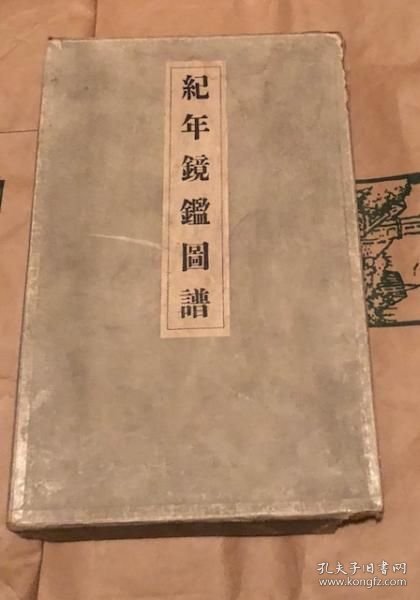 紀年鏡鑑圖譜
孔夫子旧书网
www.kongfz.com